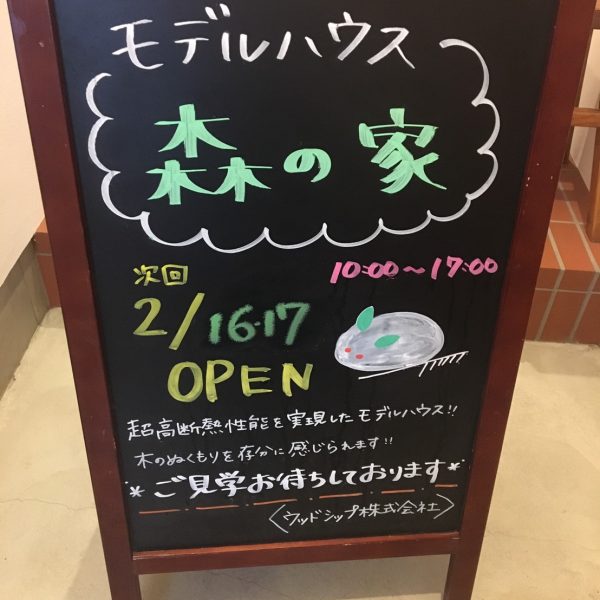 モデルハウス
森の家
次回
10:00〜17:00
2/16・17
OPEN
超高断熱性能を実現したモデルハウス!!
木のぬくもりを存分に感じられます!!
*ご見学お待ちしております*
〈ウッドシップ株式会社〉